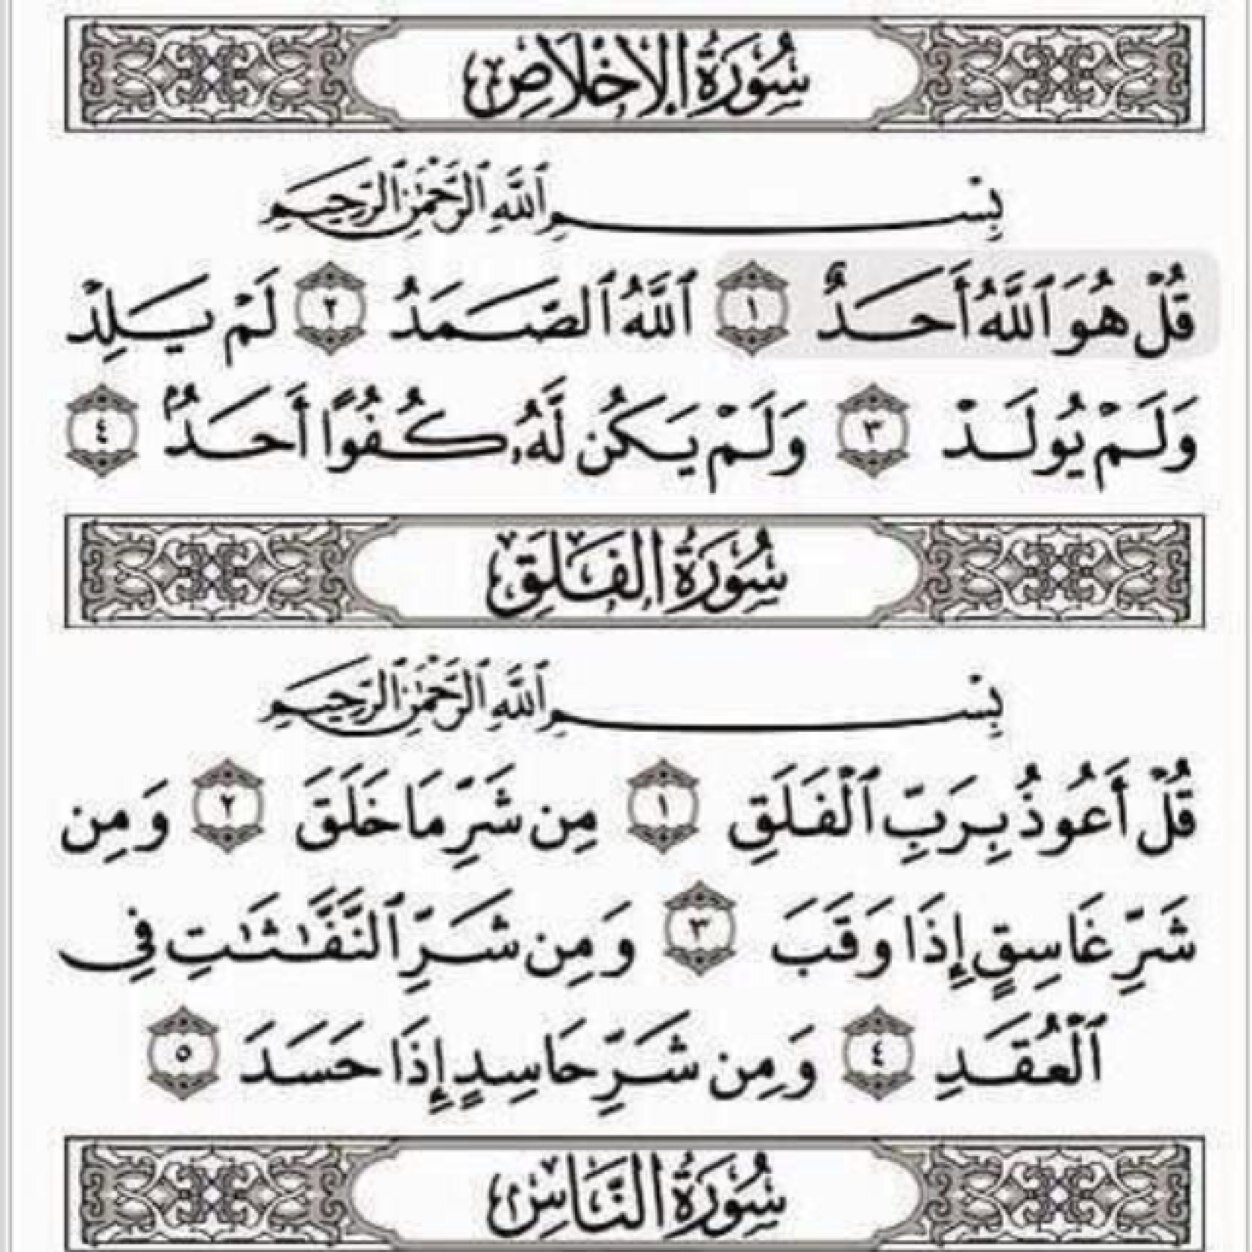 سُورَةُ الإِخْلَاصِ
بِسْمِ ٱللَّهِ ٱلرَّحْمَٰنِ ٱلرَّحِيمِ
قُلْ هُوَ ٱللَّهُ أَحَدٌ ١ ٱللَّهُ ٱلصَّمَدُ ٢ لَمْ يَلِدْ
وَلَمْ يُولَدْ ٣ وَلَمْ يَكُن لَّهُۥ كُفُوًا أَحَدٌۢ ٤
سُورَةُ الفَلَقِ
بِسْمِ ٱللَّهِ ٱلرَّحْمَٰنِ ٱلرَّحِيمِ
قُلْ أَعُوذُ بِرَبِّ ٱلْفَلَقِ ١ مِن شَرِّ مَا خَلَقَ ٢ وَمِن
شَرِّ غَاسِقٍ إِذَا وَقَبَ ٣ وَمِن شَرِّ ٱلنَّفَّٰثَٰتِ فِى
ٱلْعُقَدِ ٤ وَمِن شَرِّ حَاسِدٍ إِذَا حَسَدَ ٥
سُورَةُ النَّاسِ